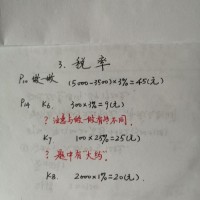 3. 税率
P10 做一做 (5000-3500)×3%=45(元)
P14 K6. 300×3%=9(元)
? 注意与做一做有何不同.
K7. 100×25%=25(元)
? 题中有"大约"
K8. 2000×1%=20(元).